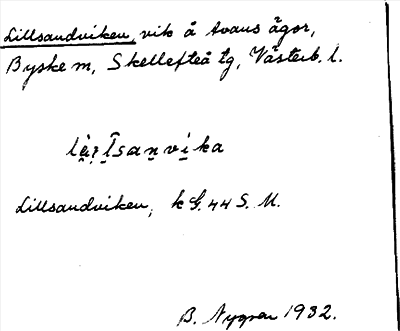 Lillsandviken, vik å Avans ägor,
Byske m, Skellefteå tg, Västerb. l.
Lillsandviken, k G. 44 S. M.
B. Nygren 1932.